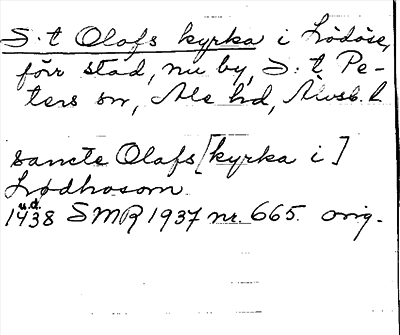 S:t Olafs kyrka i Lödöse,
förr stad, nu by, S:t Pe-
ters sn, Ale hd, Älvsb. l
sancte Olafs [kyrka i]
Lødhosom
u.d.
1438 SMR 1937 nr. 665. orig.